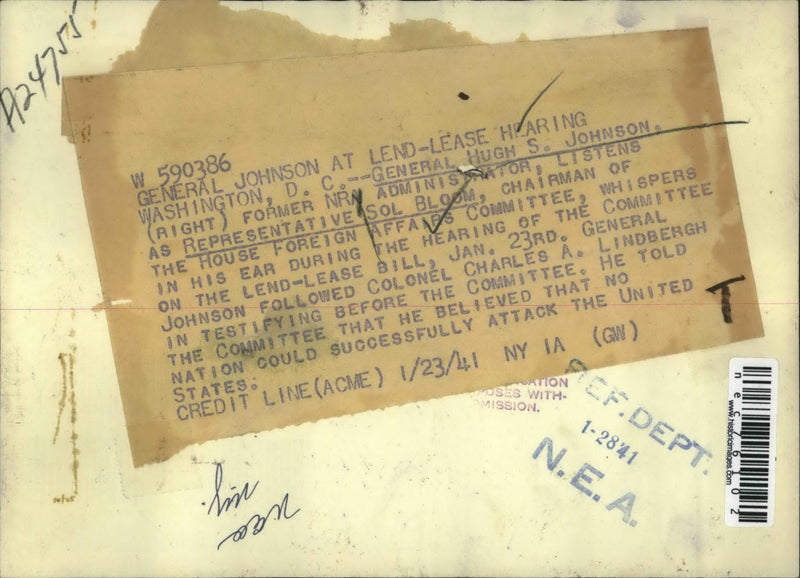 A24755
W 590386
GENERAL JOHNSON AT LEND-LEASE HEARING
WASHINGTON, D. C.--GENERAL HUGH S. JOHNSON.
(RIGHT) FORMER NRA ADMINISTRATOR, LISTENS
AS REPRESENTATIVE SOL BLOOM, CHAIRMAN OF
THE HOUSE FOREIGN AFFAIRS COMMITTEE, WHISPERS
IN HIS EAR DURING THE HEARING OF THE COMMITTEE
ON THE LEND-LEASE BILL, JAN. 23RD. GENERAL
JOHNSON FOLLOWED COLONEL CHARLES A. LINDBERGH
IN TESTIFYING BEFORE THE COMMITTEE. HE TOLD
THE COMMITTEE THAT HE BELIEVED THAT NO
NATION COULD SUCCESSFULLY ATTACK THE UNITED
STATES.
CREDIT LINE(ACME) 1/23/41 NY IA (GW)
CATION
POSES WITH-
MISSION.
REF. DEPT.
1-2841
N.E.A.
nec76102
www.historicimages.com